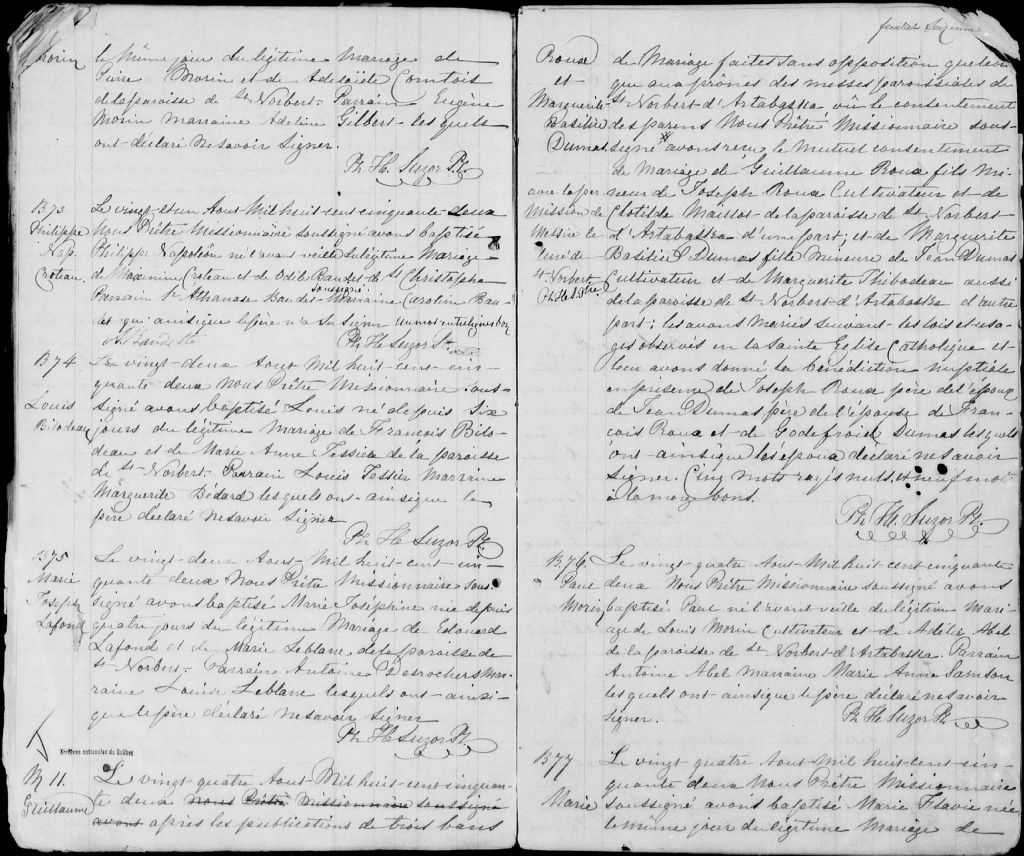 Morin
le même jour du légitime Mariage de
Morin et de Adelaïde Comtois
de la paroisse de St. Norbert- Parrain Eugène
Morin marraine Adeline Gilbert- lesquels
ont-déclaré ne savoir signer.
Ph H. Suzor Pt.
B73
Philippe
Nap.
Croteau
Le vingt-et-un Aout Mil huit-cent-cinquante-deux
Nous Prêtre Missionnaire soussigné avons baptisé
Philippe Napoléon né l'avant veille du légitime Mariage
de Maximin Croteau et de Odile Baudet de St Christophe
soussigné
Parrain Athanase Baudet Marraine Caroline Bau-
det qui ainsi que le père n'a su signer un mot entreligne bon
A Baudette
Ph H Suzor Pt
B74
Louis
Bilodeau
Le vingt-deux Aout Mil huit-cent-cin-
quante deux Nous Prêtre Missionnaire sous-
signé avons baptisé Louis né depuis six
jours du légitime Mariage de François Bilo-
deau et de Marie Anne Tessier de la paroisse
de St- Norbert- Parrain Louis Tessier Marraine
Marguerite Bédard lesquels ont-ainsi que le
père déclaré ne savoir signer
Ph H Suzor Pt.
B75
Marie
Joseph
Lafond
Le vingt-deux Aout-Mil huit-cent-cin-
quante deux Nous Prêtre Missionnaire sous-
signé avons baptisé Marie Joséphine née depuis
quatre jours du légitime Mariage de Edouard
Lafond et de Marie Leblanc de la paroisse de
St- Norbert- Parrain Antoine Desrochers Mar-
raine Louise Leblanc lesquels ont-ainsi-
que le père déclaré ne savoir signer
Ph H Suzor Pt
Archives nationales du Québec
M 11.
Guillaume
Le vingt quatre Aout Mil huit-cent-cinquan-
te deux nous Prêtre Missionnaire soussigné
avons après les publications de trois bans
feuillet Seizième
Roux
et-
Marguerite
Basilice
Dumas
de Mariage faites sans opposition quelcon
que aux prônes des messes paroissiales de
St Norbert d'Artabaska vû le consentement
des parens Nous Prêtre Missionnaire sous-
signé avons reçu le mutuel consentement
de Mariage de Guillaume Roux fils mi-
neur de Joseph Roux Cultivateur et- de
Clotilde Maillot- de la paroisse de St- Norbert-
d'Artabaska d'une part; et-de Marguerite
Basilice Dumas fille mineure de Jean Dumas
Cultivateur et- de Marguerite Thibodeau aussi
de la paroisse de St- Norbert-d'Artabaska d'autre
part; les avons mariés suivant- les lois et usa-
ges observés en la Sainte Eglise Catholique et-
leur avons donné la bénédiction nuptiale
en présence de Joseph Roux père de l'époux
de Jean Dumas père de l'épouse de Fran-
çois Roux et-de Godefroid Dumas lesquels
ont-ainsi que les époux déclaré ne savoir
signer. Cinq mots rayés nuls, & neuf mots
à la marge bons.
avec la per
mission de
Messire le
Curé de
St Norbert
Ph H S Ptre
Ph. H. Suzor Pt.
B76
Paul
Morin
Le vingt quatre Aout Mil huit-cent-cinquante
deux Nous Prêtre Missionnaire soussigné avons
baptisé Paul né l'avant veille du légitime Mari-
age de Louis Morin Cultivateur et-de Adélie Abel
de la paroisse de St- Norbert-d'Artabaska. Parrain
Antoine Abel Marraine Marie Anne Samson
lesquels ont-ainsi que le père déclaré ne savoir
signer.
Ph H Suzor Pt.
B77
Marie
Le vingt quatre Aout Mil huit-cent-cin-
quante deux Nous Prêtre Missionnaire
soussigné avons baptisé Marie Flavie née
le même jour du légitime Mariage de